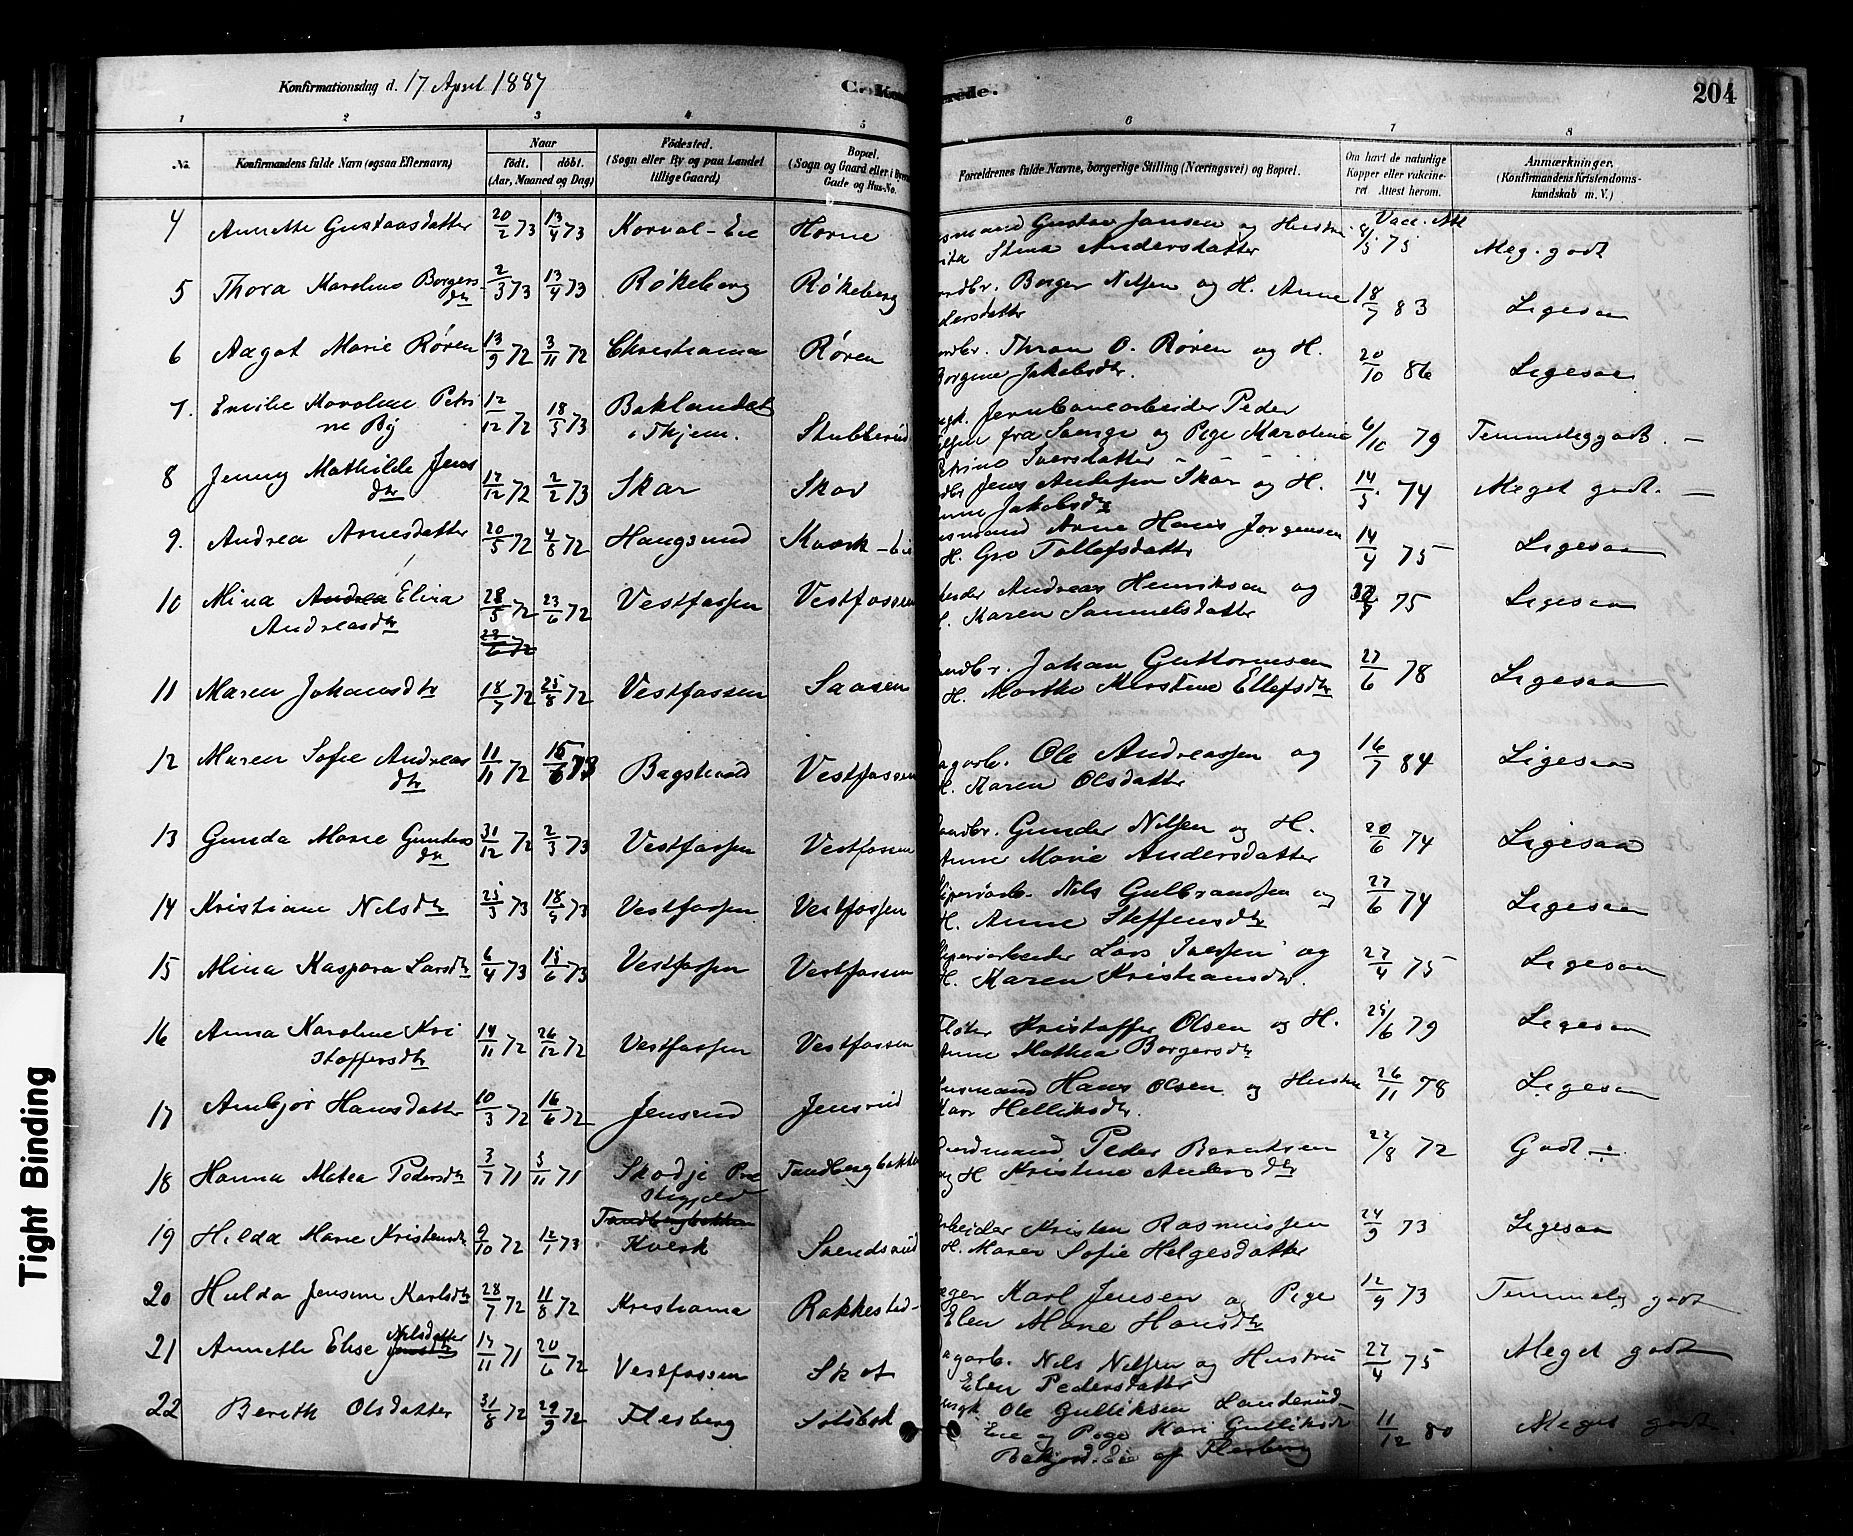 Konfirmationsdag d. 17 April 1887
204
1 2 3 4 5 6 7 8
No.
Konfirmandens fulde Navn (ogsaa Efternavn)
Naar
født. døbt.
(Aar, Maaned og Dag)
Fødested.
(Sogn eller By og paa Landet
tillige Gaard)
Bopæl.
(Sogn og Gaard eller i Byerne
Gade og Hus-No.
Forældrenes fulde Navne, borgerlige Stilling (Næringsvei) og Bopæl.
Om havt de naturlige
Kopper eller vakcine-
ret Attest herom.
Anmærkninger.
(Konfirmandens Kristendoms-
kundskab m. V.)
4 Annette Gustavsdatter 20/2 73 13/4 73 Korval-Eie Horne
Gustav Jansen og Hustru
Stina Andersdatter
Vacc. Att
8/5 75 Meg. godt
5 Thora Karoline Borgers
dtr 2/3 73 13/4 73 Røkeberg Røkeberg
Borger Nilsen og H. Anne
18/7 83 Ligesaa
6 Aagot Marie Røren 13/9 72 3/11 72 Christiania Røren
Thron O. Røren og H.
Borgine Jakobsdtr.
20/10 86 Ligesaa
7. Emilie Karoline Petri
ne By 12/12 72 18/5 73 Baklandet
i Thjem. Stubberud
Jernbanearbeider Peder
fra og Pige Karoline
Iversdatter
6/10 79 Temmelig godt. —
8 Jenny Mathilde Jens
dtr 17/12 72 2/2 73 Skar Skar
Jens Andersen Skar og H.
Jakobsdtr
14/5 74 Meget godt. —
9. Andrea Arnesdatter 20/5 72 4/8 72 Haugsund Kværk-Eie
Arne Hans Jørgensen
H. Gro Tollefsdatter
14/4 75 Ligesaa
10 Mina Andrea Elina
Andreasdtr 28/5 72 23/6 72 Vestfossen Vestfossen
23/6 72
Andreas Henriksen og
Karen Samuelsdatter
75 Ligesaa
11 Maren Johansdtr 18/7 72 25/8 72 Vestfossen Saasen
Johan Guttormsen
H. Marthe Kirstine Ellefsdtr
27/6 78 Ligesaa
12 Maren Sofie Andreas
dtr 11/11 72 15/6 73 Bagstraad Vestfossen
Ole Andreassen og
H. Karen Olsdatter
16/7 84 Ligesaa
13 Gunda Marie Gunders
dtr 31/12 72 2/3 73 Vestfossen Vestfossen
Gunder Nilsen og H.
Anne Marie Andersdatter
20/6 74 Ligesaa
14 Kristiane Nilsdtr 25/3 73 18/5 73 Vestfossen Vestfossen
Nils Gulbransen og
H. Anne Steffensdtr
27/6 74 Ligesaa
15 Mina Kaspara Larsdtr 6/4 73 15/6 73 Vestfossen Vestfossen
Lars Iversen og
H. Karen Kristiansdtr.
27/4 75 Ligesaa
16 Anna Karoline Kri
stoffersdtr 14/11 72 26/12 72 Vestfossen Vestfossen
Kristoffer Olsen og H.
Anne Mathea Borgersdtr
25/6 79 Ligesaa
17 Ambjør Hansdatter 10/3 72 16/6 72 Jensrud Jensrud
Husmand Hans Olsen og Hustru
Kari Helliksdtr.
26/11 78 Ligesaa
18 Hanna Matea Pedersdtr 3/7 71 5/11 71 Skodje Præ
stegjeld Tandbergbakken
Peder Berntsen
og H Kristine Andersdtr
22/8 72 Godt ÷
19 Hilda Marie Kristensdtr 9/10 72 12/1 73 Tandbergbakken
Kværk Sændsrud
Arbeider Kristen Rasmussen
H. Maren Sofie Helgesdatter
24/9 73 Ligesaa
20 Hulda Jensine Karlsdtr 28/7 72 11/8 72 Kristiania Rakkestad-
Karl Jensen og Pige
Elen Marie Hansdtr
12/9 73 Temmelig godt
21 Annette Elise Nilsdatter
Jensdtr 17/11 71 20/6 72 Vestfossen Skot
Nils Nilsen og Hustru
Elen Pedersdatter
27/4 75 Meget godt
22 Bereth Olsdatter 31/8 72 29/9 72 Flesberg
Ole Gulliksen Landerud-
Eie og Pige Kari Gulliksdtr
Bakjord-Eie af Flesberg
11/12 80 Meget godt.
Tight Binding